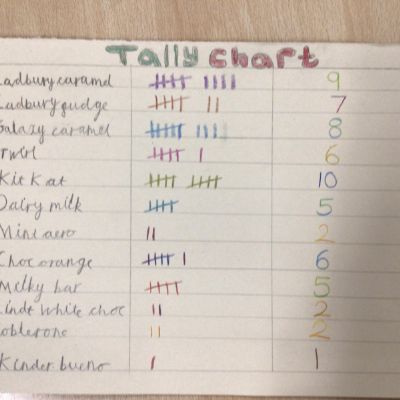 Tally Chart
Cadbury caramel 9
Cadbury fudge 7
Galaxy caramel 8
Twirl 6
Kit Kat 10
Dairy milk 5
Mini aero 2
Choc orange 6
Milky bar 5
Lindt white choc 2
Toblerone 2
Kinder bueno 1